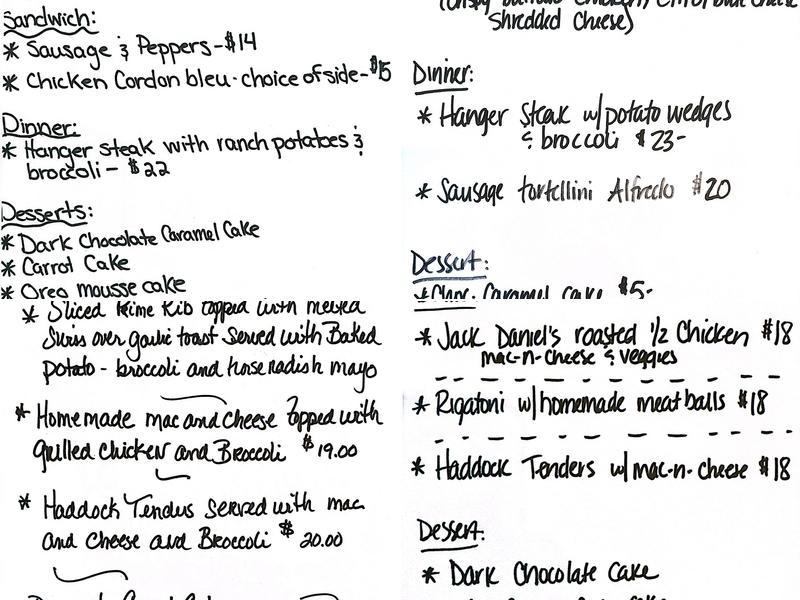 Sandwich:
* Sausage & Peppers - $14
* Chicken Cordon bleu - choice of side - $15
Dinner:
* Hanger steak with ranch potatoes &
broccoli - $22
Desserts:
* Dark Chocolate Caramel Cake
* Carrot Cake
* Oreo mousse cake
* Sliced Prime Rib topped with melted
Swiss over garlic toast served with Baked
potato - broccoli and horseradish mayo
* Homemade mac and cheese topped with
grilled chicken and Broccoli $19.00
* Haddock Tenders served with mac
and cheese and Broccoli $20.00
Shredded Cheese)
Dinner:
* Hanger steak w/ potato wedges
& broccoli $23-
* Sausage tortellini Alfredo $20
Dessert:
* Choc. Caramel cake $5-
* Jack Daniel's roasted 1/2 Chicken $18
mac-n-cheese & veggies
* Rigatoni w/ homemade meatballs $18
* Haddock Tenders w/ mac-n-cheese $18
Dessert:
* Dark Chocolate Cake